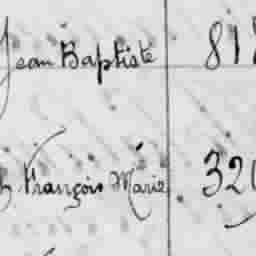 Jean Baptiste 818
François Marie 320